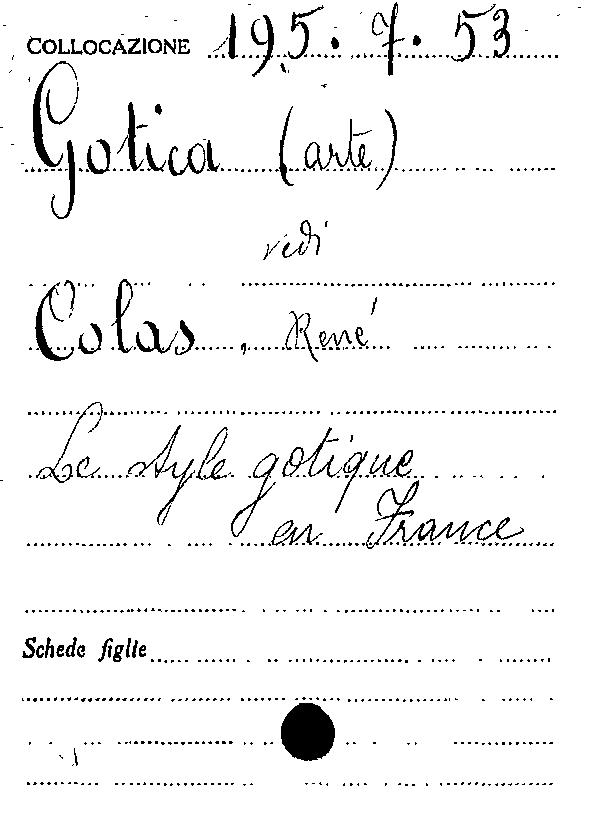 COLLOCAZIONE 195. 7. 53
Gotica (arte)
vedi
Colas, René
Le style gotique
en France
Schede figlie